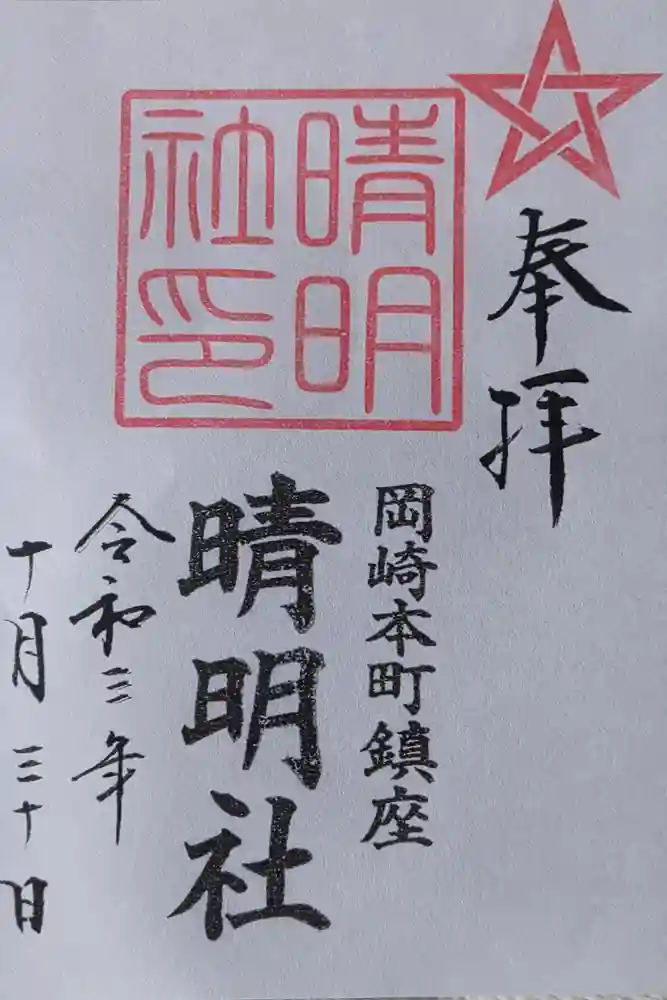 奉拝
岡崎本町鎮座
晴明
社印
晴明社
令和三年
十月三十日